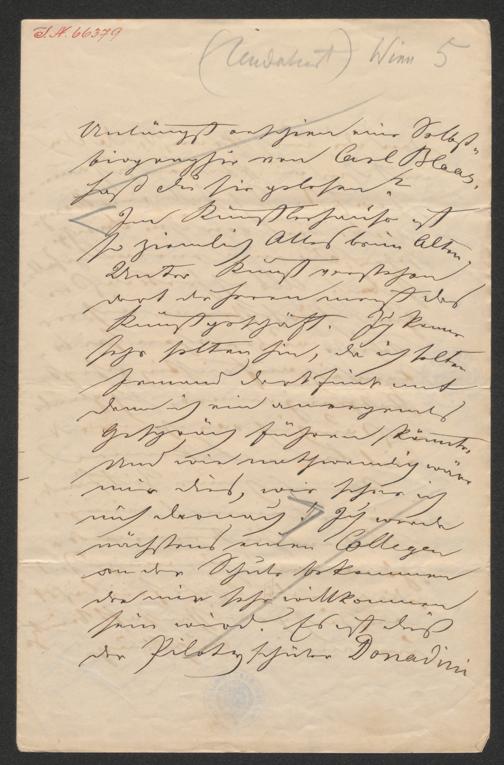 I.N. 66379
Wien 5
Unlängst erschien eine Selbst-
biographie von Carl Blaas,
hast du sie gelesen?
Im Künstlerhause ist
so ziemlich Alles beim Alten.
Unter Kunst verstehen
dort die Herren meist das
Kunstgeschäft. Ich komme
sehr selten hin, da ich selten
Jemand dort finde mit
dem ich ein anregendes
Gespräch führen könnte.
Und wie nothwendig wäre
mir dies, wie sehne ich
mich darnach! Ich werde
nächstens einen Collegen
an der Schule bekommen
der mir sehr willkommen
sein wird. Es ist dies
der Pilotyschüler Donadini